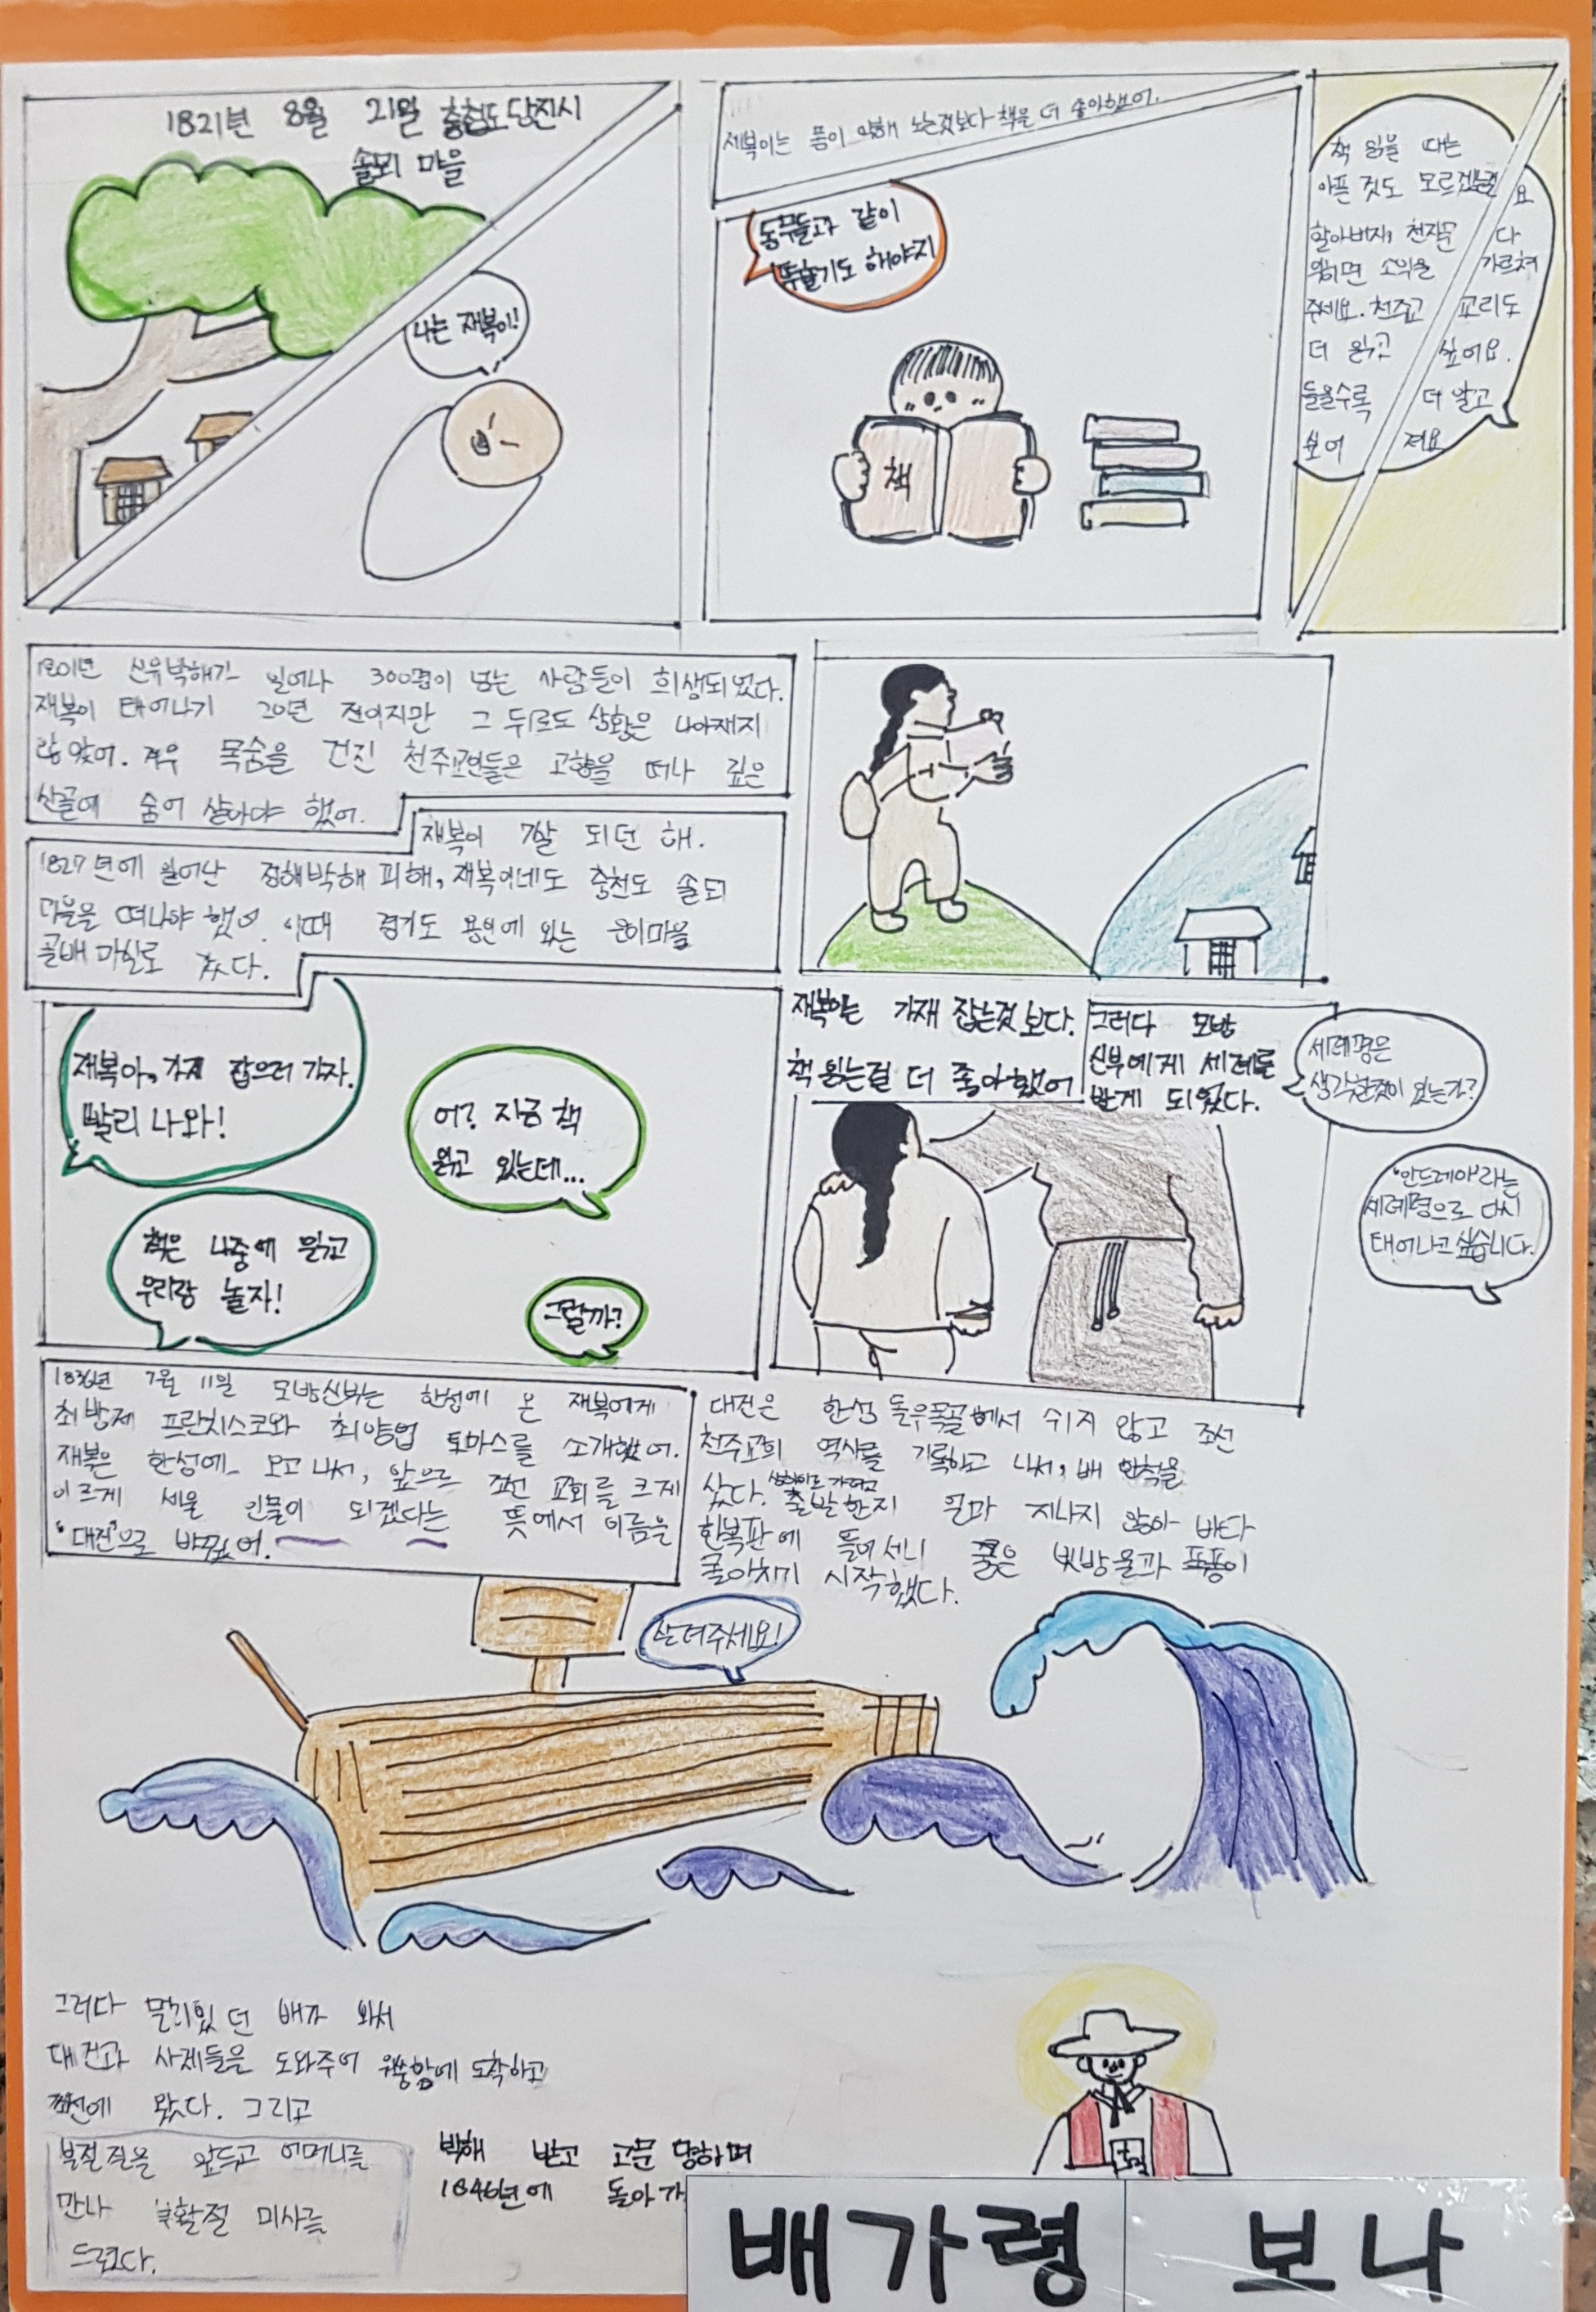 1821년 8월 21일 충청도 당진시
솔뫼 마을
나는 재복이!
재복이는 몸이 약해 노는것보다 책을 더 좋아했어.
동무들과 같이
뛰놀기도 해야지
책
책 읽을 때는
아픈 것도 모르겠는걸요
할아버지, 천자문 다
익히면 소학을 가르쳐
주세요. 천주교 교리도
더 읽고 싶어요.
들을수록 더 알고
싶어 져요
1801년 신유박해가 일어나 300명이 넘는 사람들이 희생되었다.
재복이 태어나기 20년 전이지만 그 뒤로도 상황은 나아재지
않았어. 겨우 목숨을 건진 천주교인들은 고향을 떠나 깊은
산골에 숨어 살아야 했어.
재복이 7살 되던 해.
1827년에 일어난 정해박해 피해, 재복이네도 충청도 솔뫼
마을을 떠나야 했어. 이때 경기도 용인에 있는 은이마을
골배마실로 갔다.
재복아, 가재 잡으러 가자.
빨리 나와!
어? 지금 책
읽고 있는데...
책은 나중에 읽고
우리랑 놀자!
그럴까?
재복이는 가재 잡는것 보다.
책 읽는걸 더 좋아했어
그러다 모방
신부에게 세례를
받게 되었다.
세례명은
생각한것이 있는가?
"안드레아'라는
세례명으로 다시
태어나고 싶습니다.
1836년 7월 11일 모방신부는 한성에 온 재복에게
최방제 프란치스코와 최양업 토마스를 소개했어.
재복은 한성에 오고 나서, 앞으로 조선 교회를 크게
이르게 세울 인물이 되겠다는 뜻에서 이름을
"대건"으로 바꿨어.
대건은 한성 돌우물골에서 쉬지 않고 조선
천주교회 역사를 기록하고 나서, 배 한척을
샀다. 상하이로 가려고 출발한지 얼마 지나지 않아 바다
한복판에 들어서니 굵은 빗방울과 폭풍이
몰아치기 시작했다.
살려주세요!
그러다 멀리있던 배가 와서
대건과 사제들을 도와주어 우쑹항에 도착하고
조선에 왔다. 그리고
부활절을 앞두고 어머니를
만나 부활절 미사를
드렸다.
박해 받고 고문 당하며
1846년에 돌아가
배가령 보나